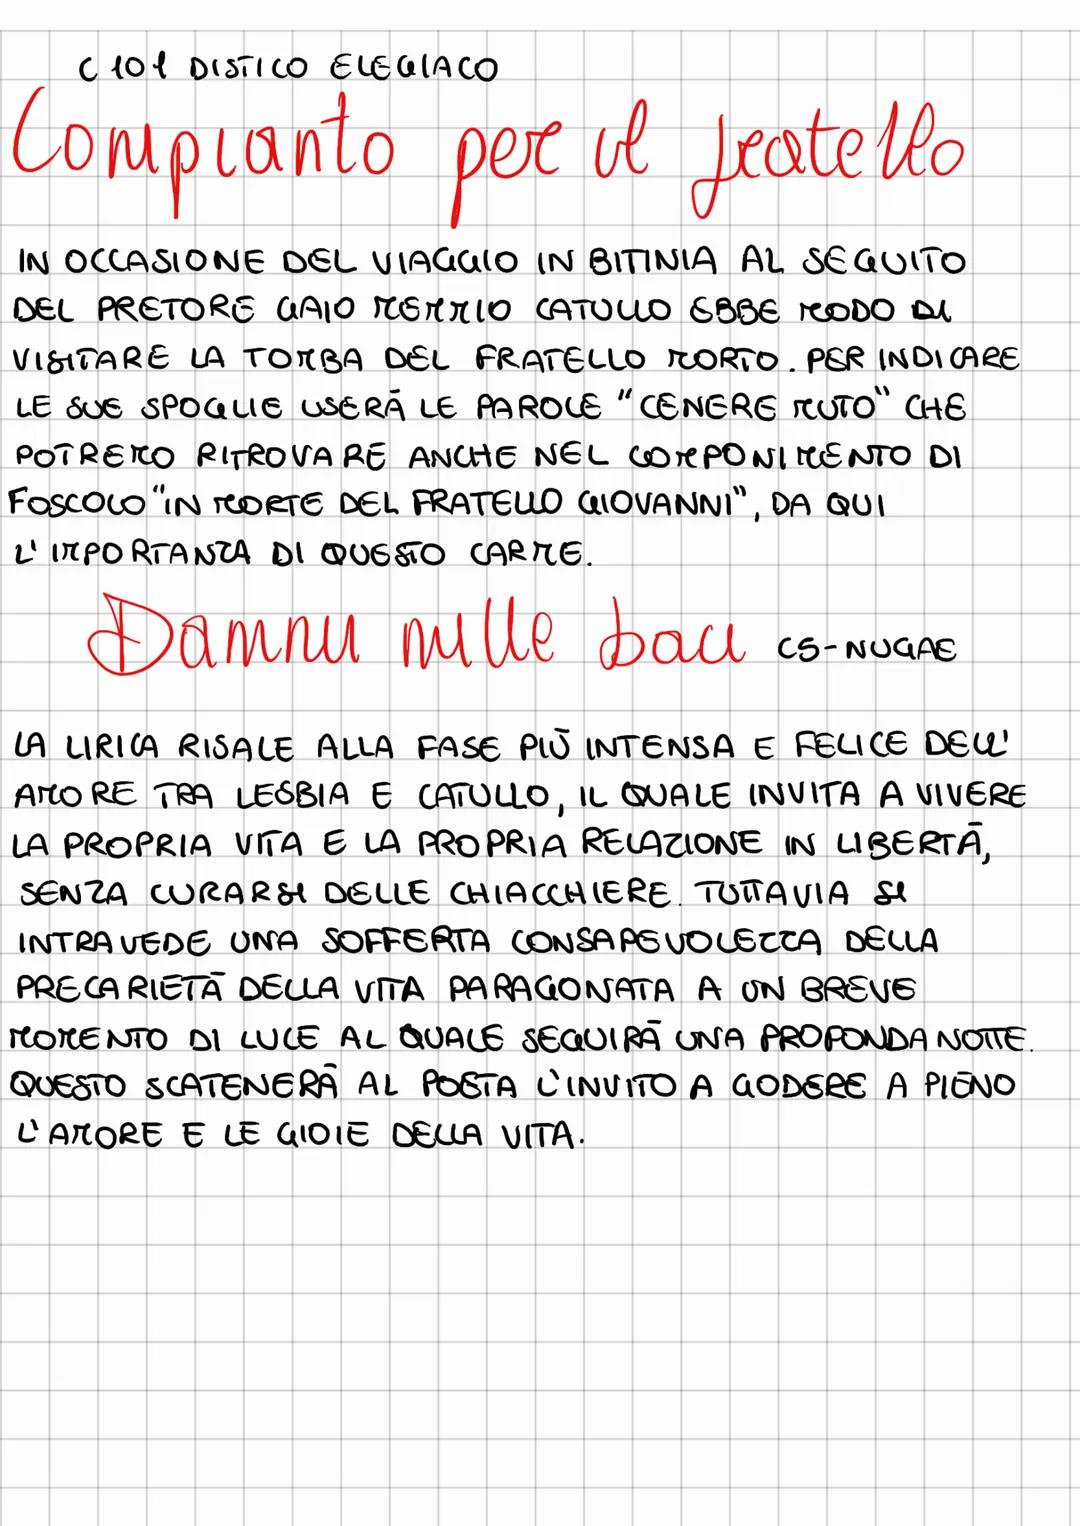 C 101 DISTICO ELEGIACO
Compianto per il fratello
IN OCCASIONE DEL VIAGGIO IN BITINIA AL SEGUITO
DEL PRETORE GAIO MEMMIO CATULLO EBBE MODO DI
VISITARE LA TOMBA DEL FRATELLO MORTO. PER INDICARE
LE SUE SPOGLIE USERÀ LE PAROLE "CENERE MUTO" CHE
POTREMO RITROVARE ANCHE NEL COMPONIMENTO DI
FOSCOLO "IN MORTE DEL FRATELLO GIOVANNI", DA QUI
L'IMPORTANZA DI QUESTO CARME.
Dammi mille baci C5-NUGAE
LA LIRICA RISALE ALLA FASE PIÙ INTENSA E FELICE DELL'
AMORE TRA LESBIA E CATULLO, IL QUALE INVITA A VIVERE
LA PROPRIA VITA E LA PROPRIA RELAZIONE IN LIBERTÀ,
SENZA CURARSI DELLE CHIACCHIERE. TUTTAVIA SI
INTRAVEDE UNA SOFFERTA CONSAPEVOLEZZA DELLA
PRECARIETÀ DELLA VITA PARAGONATA A UN BREVE
MOMENTO DI LUCE AL QUALE SEGUIRÀ UNA PROFONDA NOTTE.
QUESTO SCATENERÀ AL POETA L'INVITO A GODERE A PIENO
L'AMORE E LE GIOIE DELLA VITA.